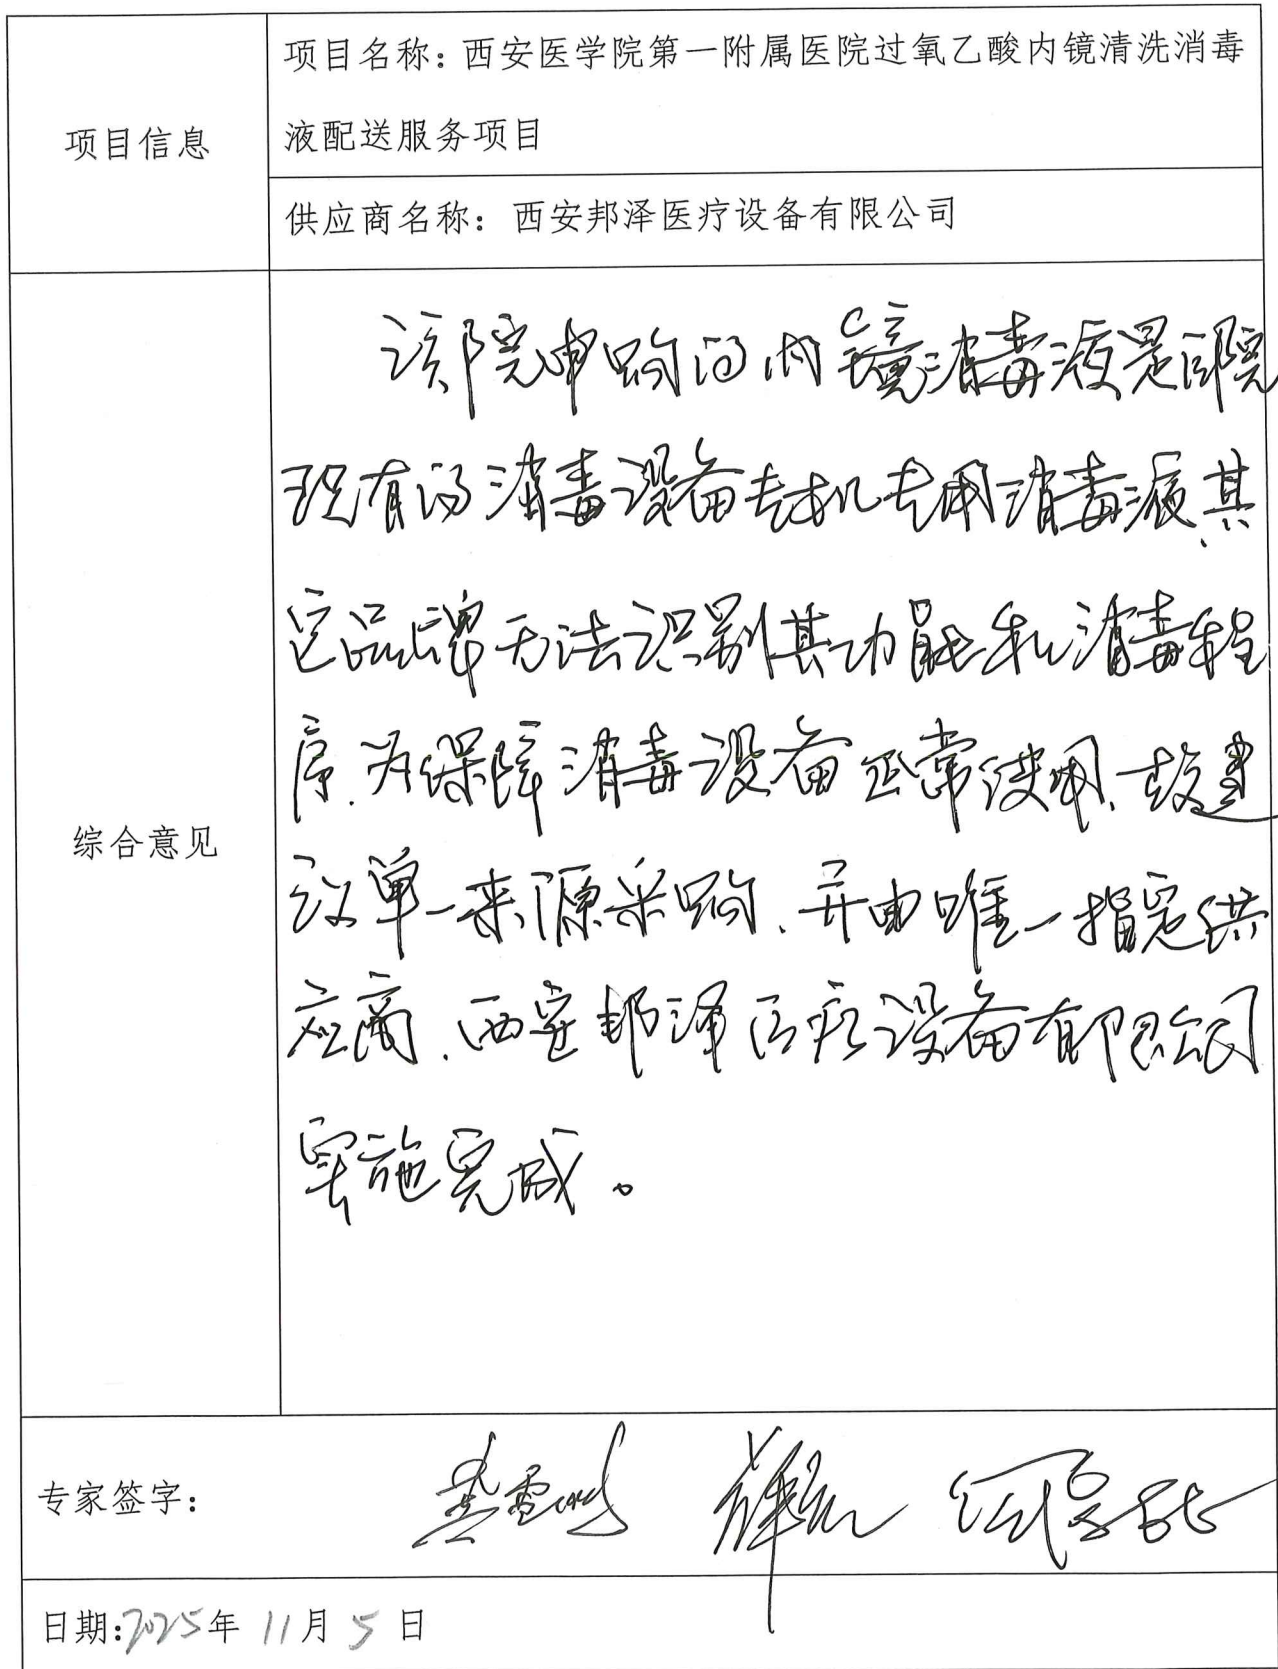 项目名称：西安医学院第一附属医院过氧乙酸内镜清洗消毒
液配送服务项目
项目信息
供应商名称：西安邦泽医疗设备有限公司
该院申购的内镜消毒液是医院
现有的消毒设备专机专用消毒液、其
它品牌无法识别其功能和消毒程
序、为保障消毒设备正常使用、故建
议单一来源采购、并由唯一指定供
应商、西安邦泽医疗设备有限公司
实施完成。
综合意见
专家签字：
日期:2025年 11月 5 日